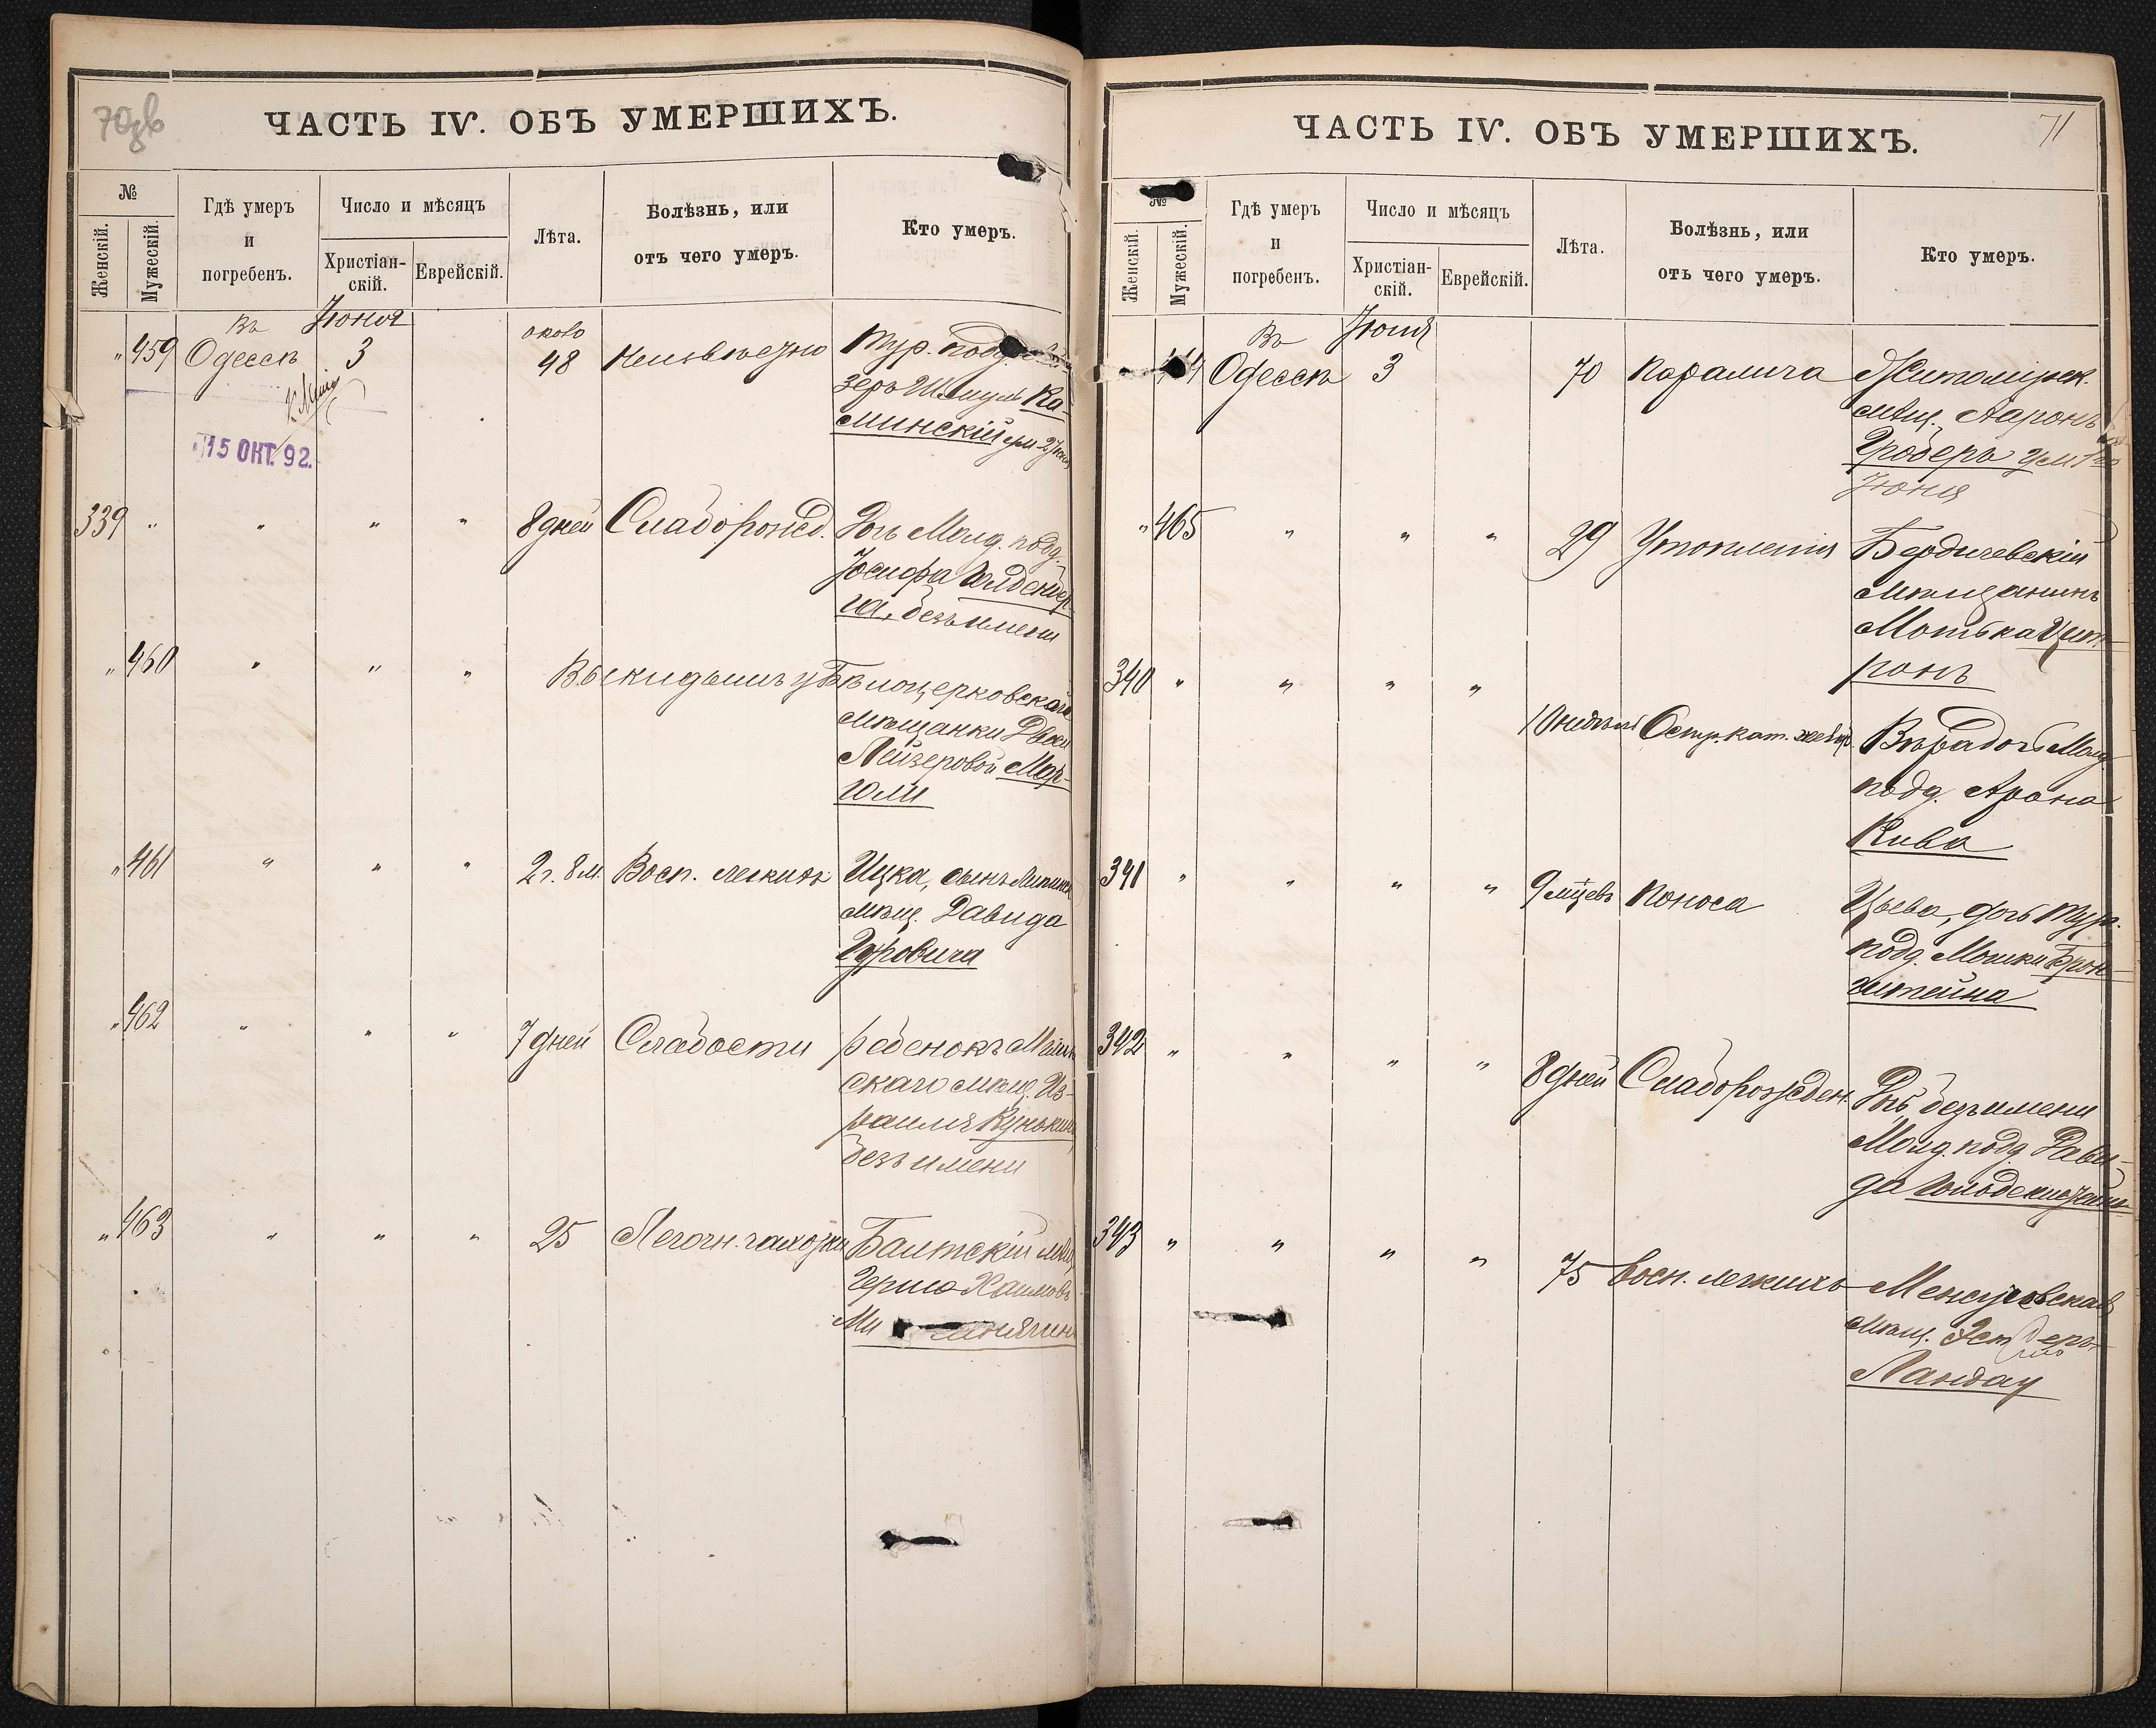 70зв
ЧАСТЬ IV. ОБЪ УМЕРШИХЪ.
№
Женскій.
Мужескій.
Гдѣ умеръ
и
погребенъ.
Число и мѣсяцъ
Христіан-
скій.
Еврейскій.
Лѣта.
Болѣзнь, или
отъ чего умеръ.
Кто умеръ.
" 459
Въ
Одессѣ
Іюня
3
около
48
Неизвѣстно
Тур. подд.
зеръ Шмуль Ка-
минскій ум. 2 Іюня
15 ОКТ. 92.
339 " " " "
8 дней
Слаборожд.
Дочь Молд. подд.
Іосифа Гольденбер-
га, безъ имени
" 460 " " "
Выкидышъ у Бѣлоцерковской
мѣщанки Двоси
Лейзеровой Мар-
голи
" 461 " " "
2 г. 8 м.
Восп. легкихъ
Ицка, сынъ
мѣщ. Давида
Гуровича
" 462 " " "
7 дней
Слабости
ребенокъ
скаго мѣщ. Из-
раиля
безъ имени
" 463 " " "
25
Легочн. чахотки
Балтскій мѣщ.
Гершъ Хаимовъ
Ми
ЧАСТЬ IV. ОБЪ УМЕРШИХЪ.
71
№
Женскій.
Мужескій.
Гдѣ умеръ
и
погребенъ.
Число и мѣсяцъ
Христіан-
скій.
Еврейскій.
Лѣта.
Болѣзнь, или
отъ чего умеръ.
Кто умеръ.
Въ
Одессѣ
Іюня
3
70
Паралича
Житомірск.
мѣщ. Ааронъ
Гроберъ ум. 1го
Іюня
" 465 " " "
29
Утопленія
Бердичевскій
мѣщанинъ
Мотька Цит-
ронъ
340 " " " "
10 недѣль
Остр. кат. желуд.
Вѣра дочь Молд.
подд. Арона
Кива
341 " " " "
9 мѣцевъ
Поноса
Цыва, дочь Тур.
подд. Мошки Брон-
штейна
342 " " " "
8 дней
Слаборожден.
Дочь, безъ имени
Молд. подд. Дави-
да
343 " " " "
75
Восп. легкихъ
мѣщ. Эстеръ
Ландау